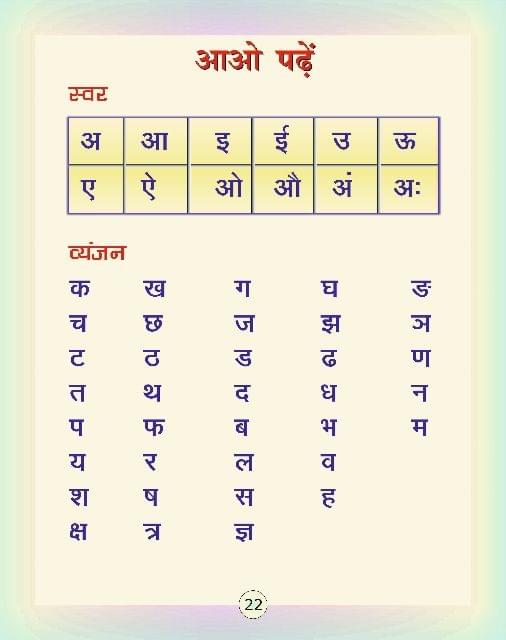 आओ पढ़ें
स्वर
अ आ इ ई उ ऊ
ए ऐ ओ औ अं अः
व्यंजन
क ख ग घ ङ
च छ ज झ ञ
ट ठ ड ढ ण
त थ द ध न
प फ ब भ म
य र ल व
श ष स ह
क्ष त्र ज्ञ
22